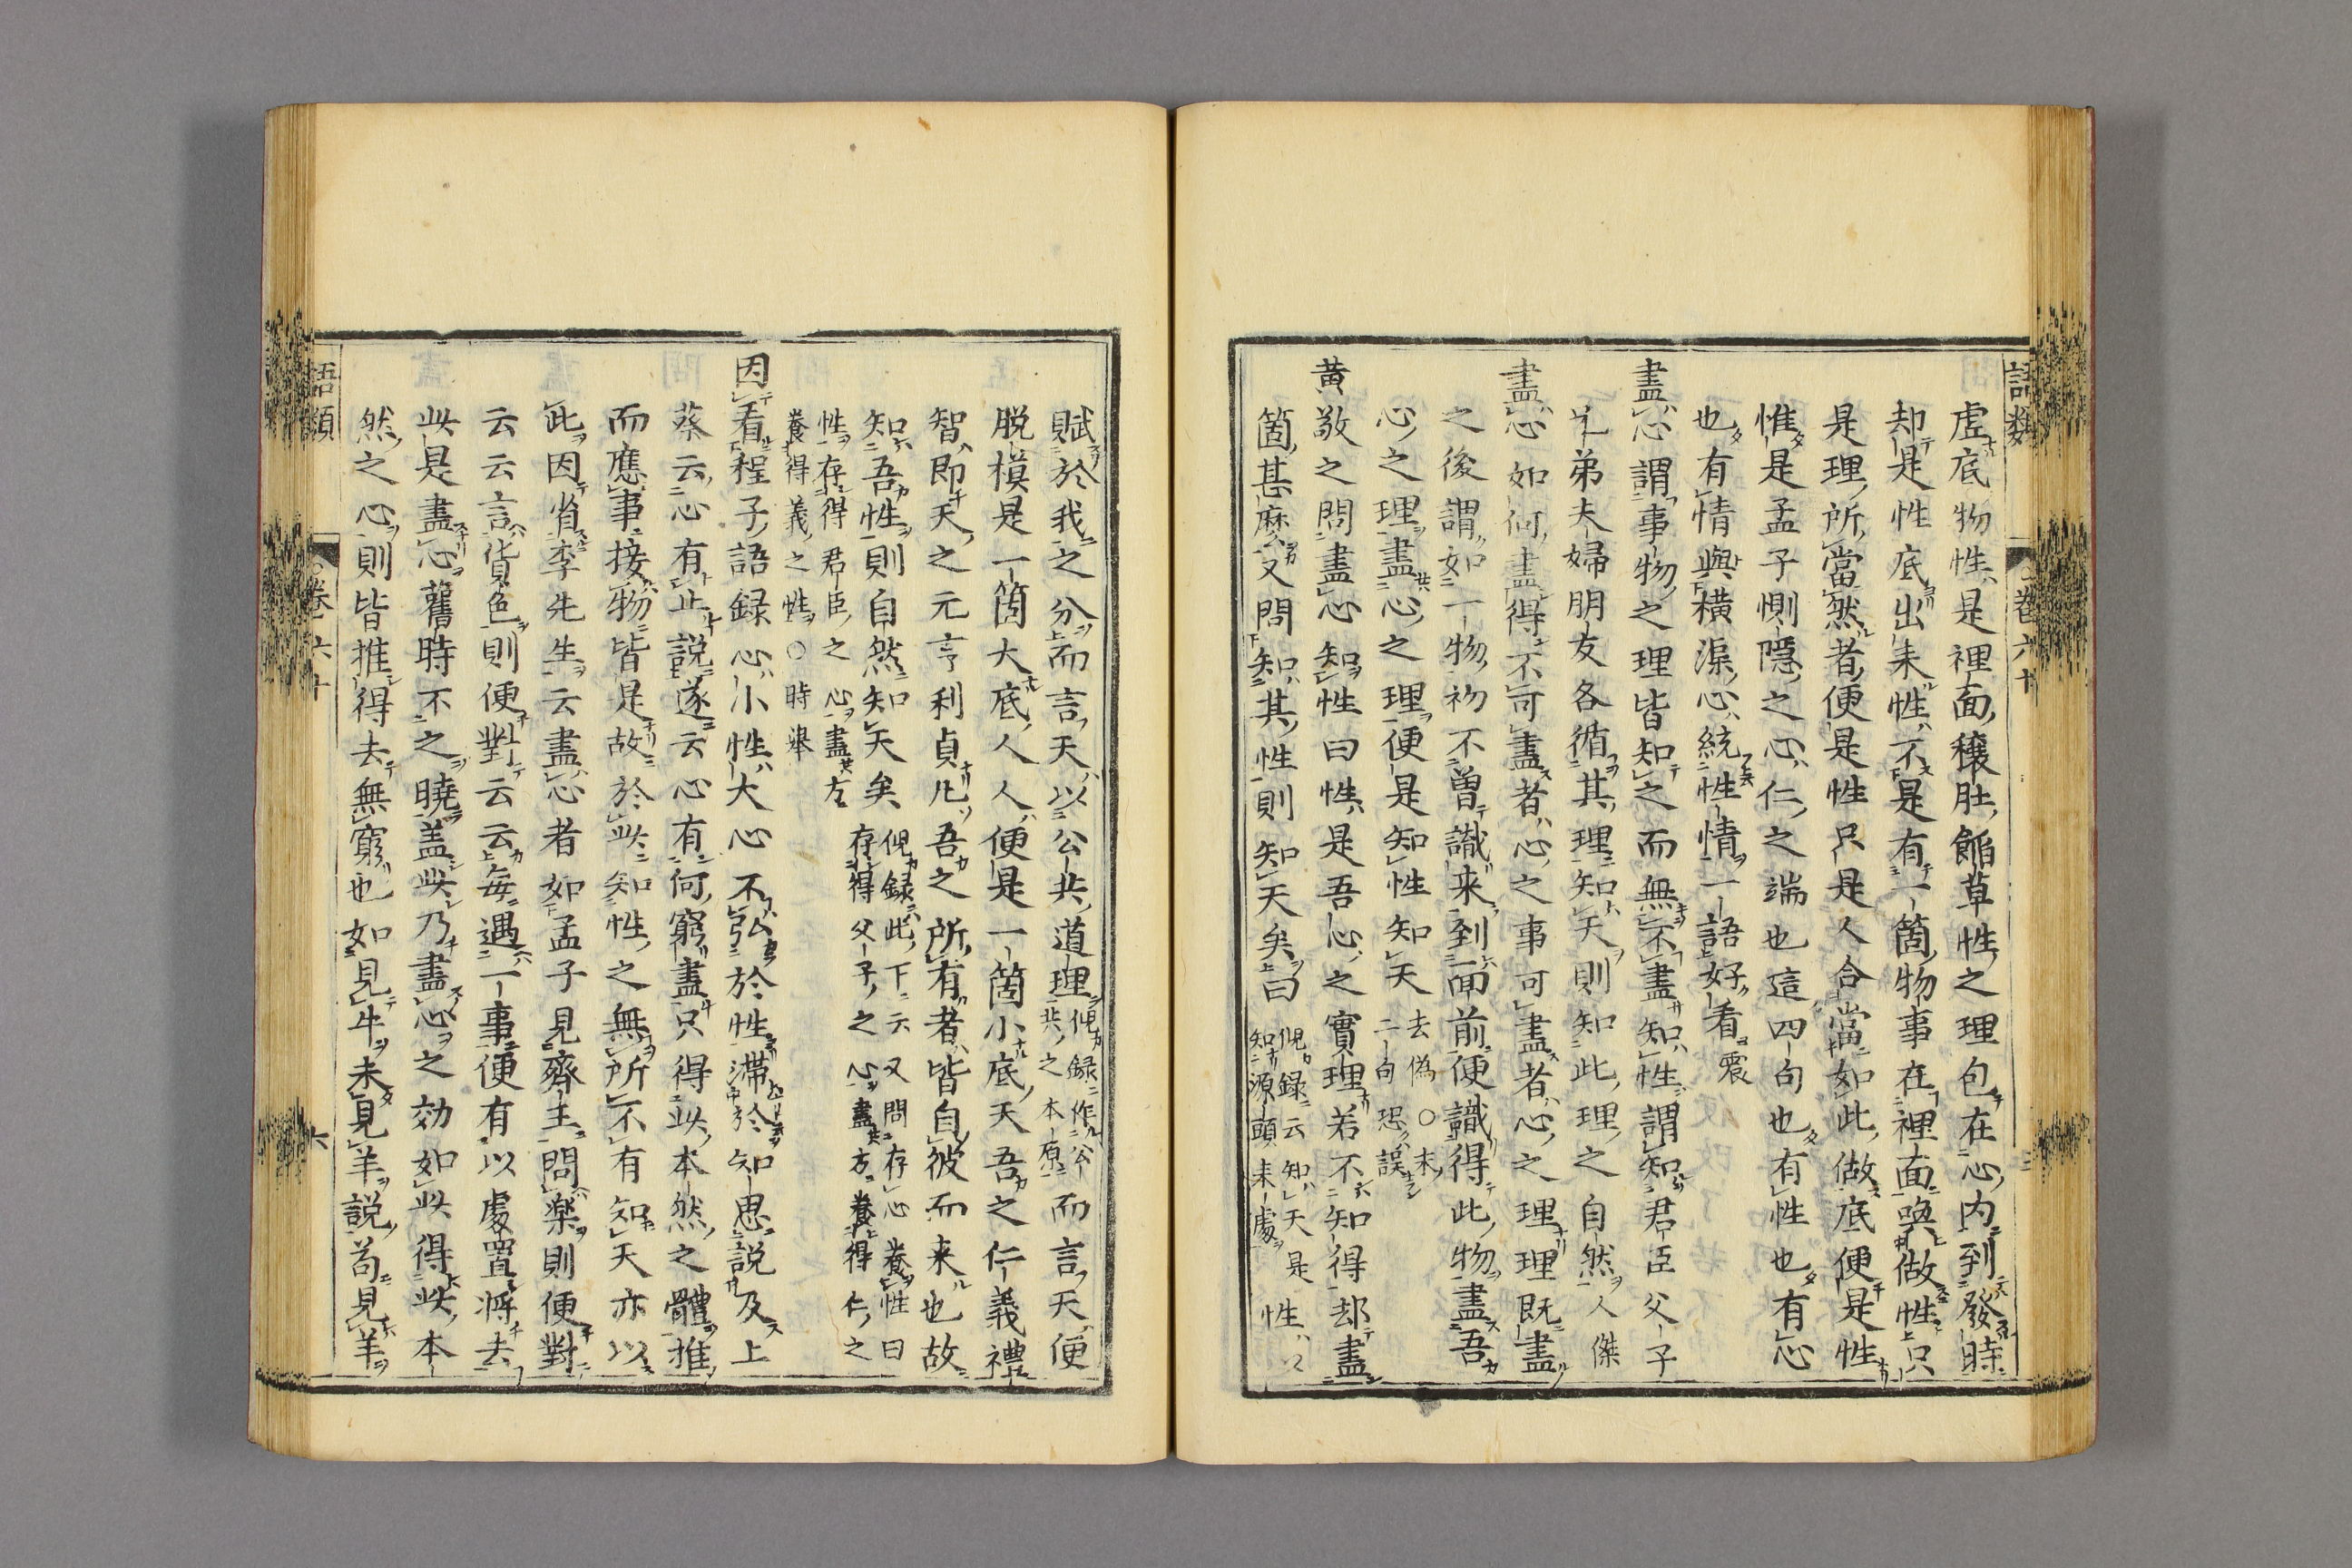 語類
卷六十
虚底物性是裡面穰肚餡草性之理包在心内到發時
却是性底出来性不是有一箇物事在裡面喚做性只
是理所當然者便是性只是人合當如此做底便是性
惟是孟子惻隠之心仁之端也這四句也有性也有心
也有情與橫渠心統性情一語好看 震
盡心謂事物之理皆知之而無不盡知性謂知君臣父子
兄弟夫婦朋友各循其理知天則知此理之自然 人傑
盡心如何盡得不可盡者心之事可盡者心之理理既盡
之後謂如一物初不曽識来到面前便識得此物盡吾
心之理盡心之理便是知性知天 去偽 ○ 末
二句恐誤
黄敬之問盡心知性曰性是吾心之實理若不知得却盡
箇甚麽又問知其性則知天矣曰 僩録云知天是
知源頭来處 性以
賦於我之分而言天以公共道理 僩録作公
共之本原 而言天便
脱模是一箇大底人人便是一箇小底天吾之仁義禮
智即天之元亨利貞凡吾之所有者皆自彼而来也故
知吾性則自然知天矣 僩録此下云又問存心養性曰
存得父子之心盡方養得仁之
性存得君臣之心盡方
養得義之性 ○ 時舉
因看程子語録心小性大心不弘於性滯於知思説及上
蔡云心有止説遂云心有何窮盡只得此本然之體推
而應事接物皆是故於此知性之無所不有知天亦以
此因省李先生云盡心者如孟子見齊王問楽則便對
云云言貨色則便對云云每遇一事便有以處置將去
此是盡心舊時不之曉蓋此乃盡心之効如此得此本
然之心則皆推得去無窮也如見牛未見羊説苟見羊
語類
卷六十
六